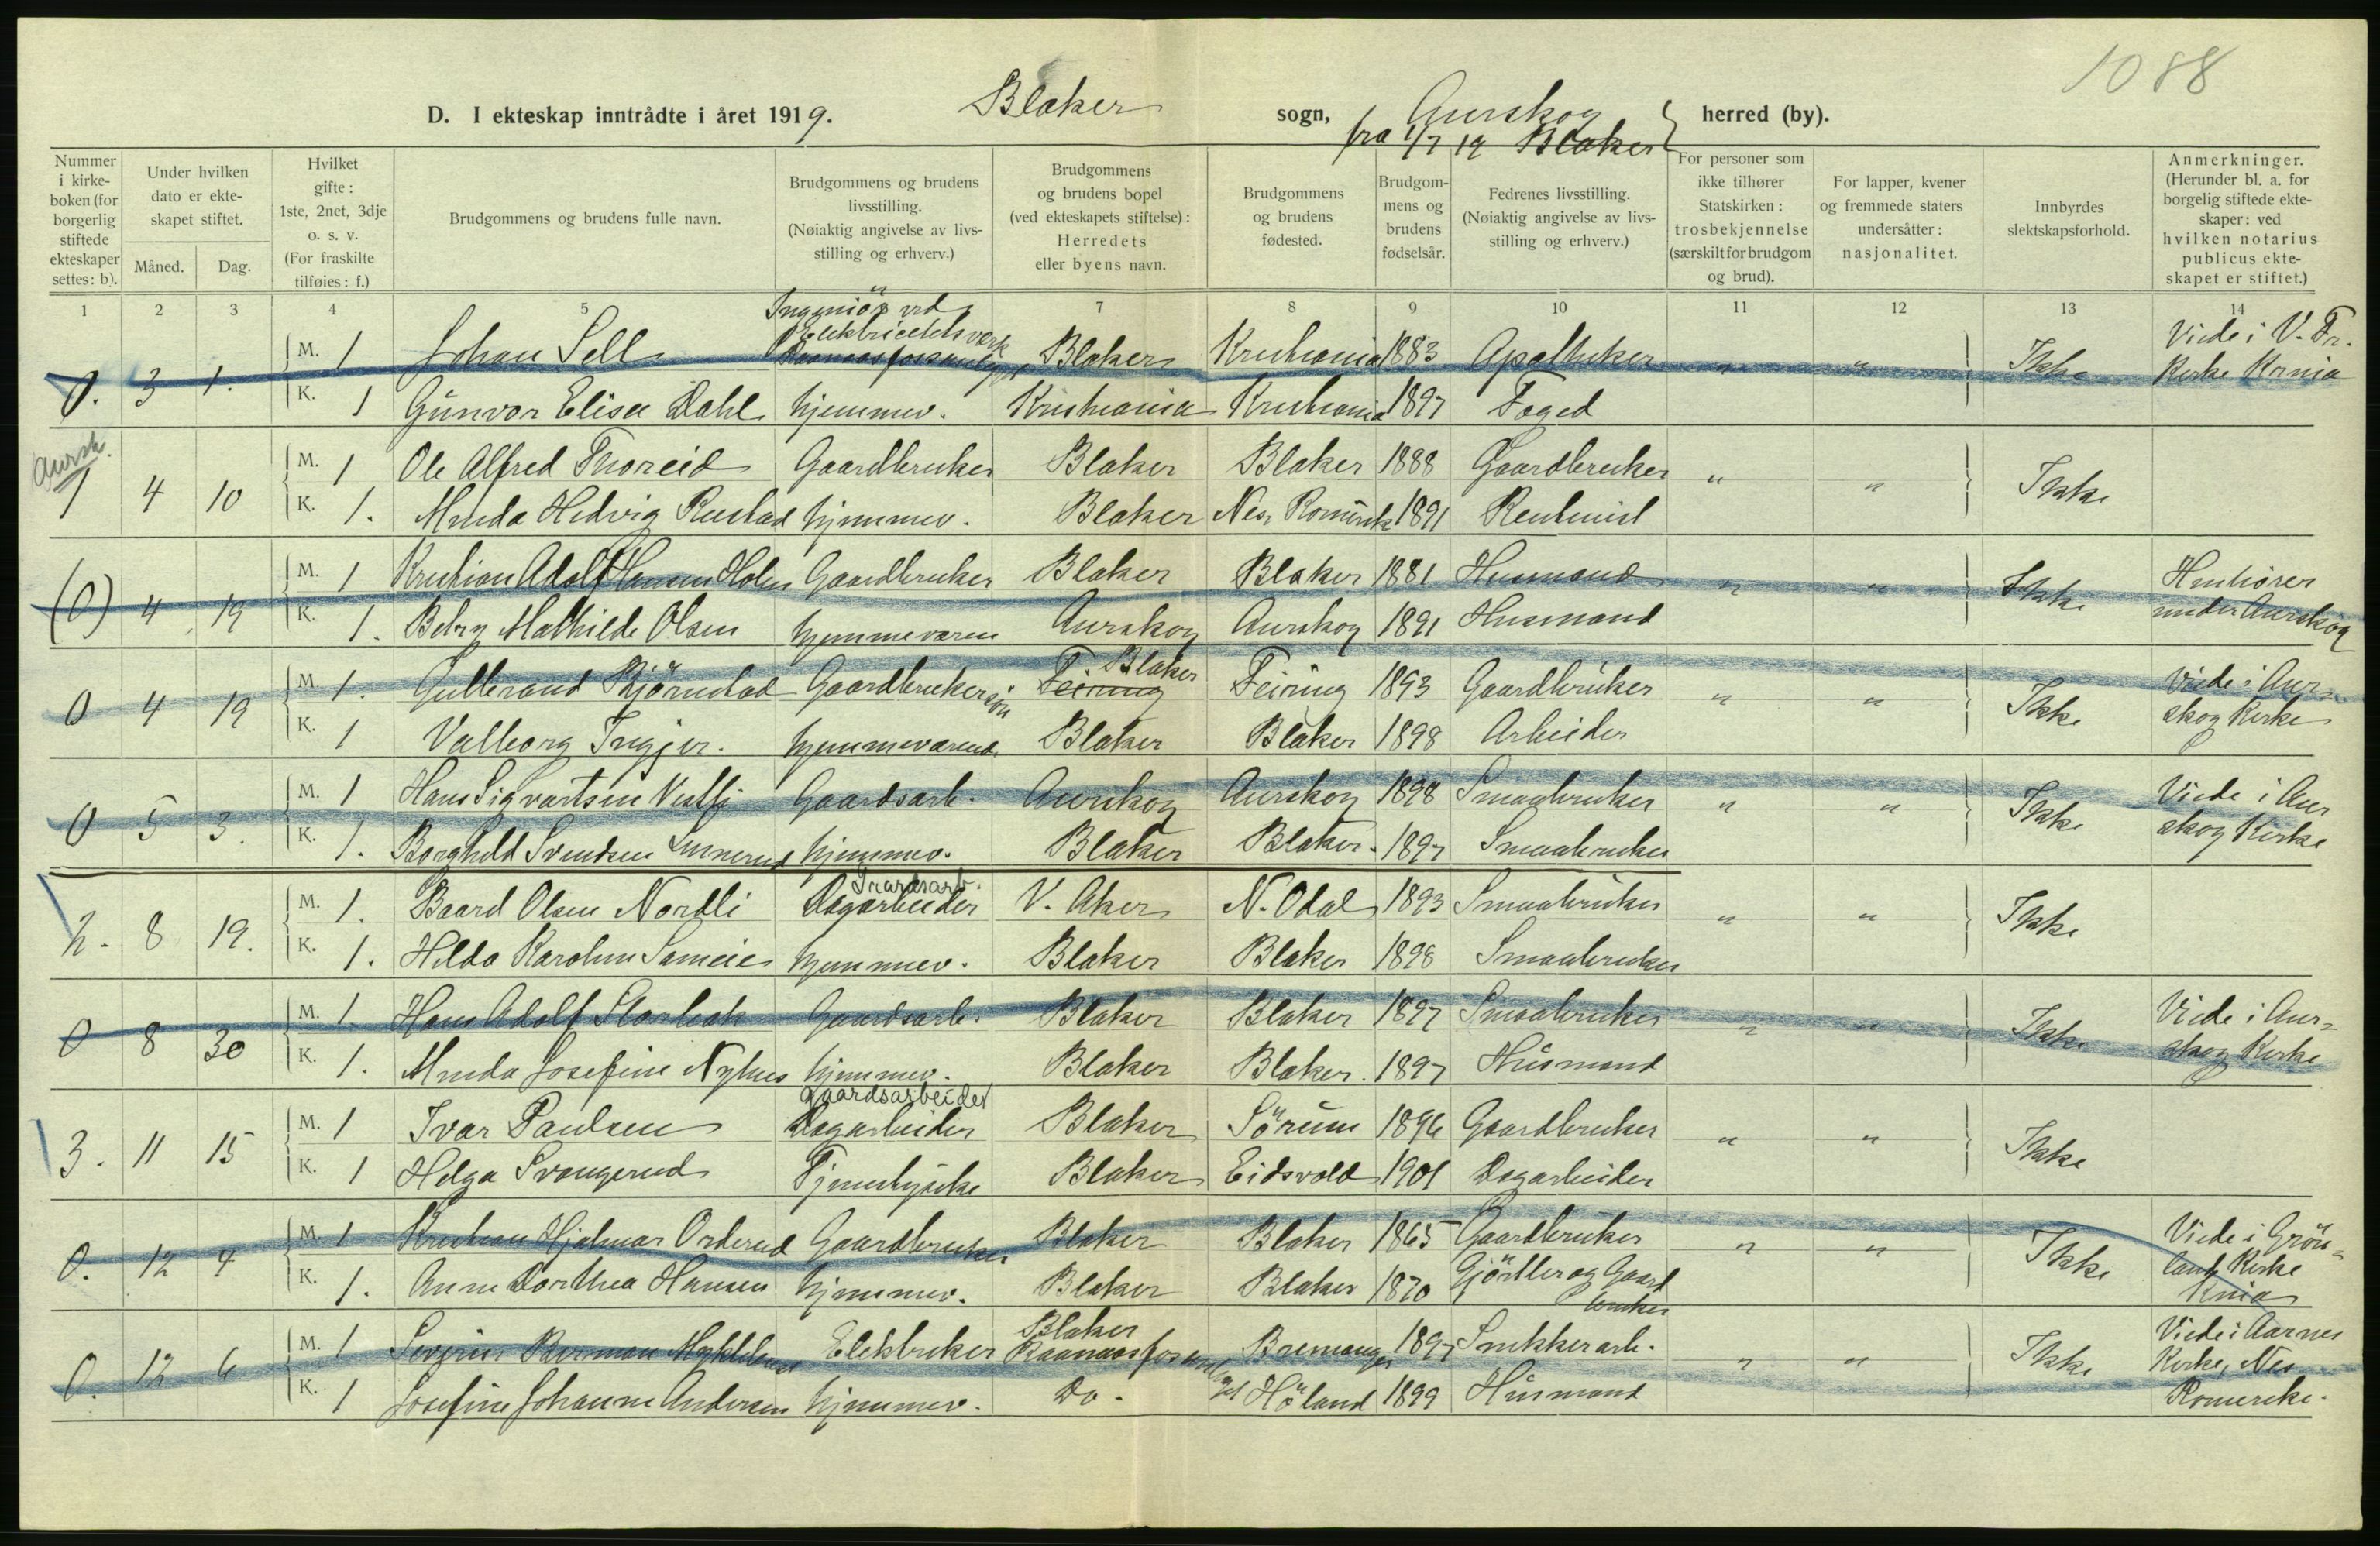 1088
D. I ekteskap inntrådte i året 1919. Blaker sogn, Aurskog herred (by).
fra 1/7 19 Blaker
Nummer i kirkeboken (for borgerlig stiftede ekteskaper settes: b).
Under hvilken dato er ekteskapet stiftet.
Måned. Dag.
Hvilket gifte: 1ste, 2net, 3dje o. s. v. (For fraskilte tilføies: f.)
Brudgommens og brudens fulle navn.
Brudgommens og brudens livsstilling. (Nøiaktig angivelse av livsstilling og erhverv.)
Brudgommens og brudens bopel (ved ekteskapets stiftelse): Herredets eller byens navn.
Brudgommens og brudens fødested.
Brudgommens og brudens fødselsår.
Fedrenes livsstilling. (Nøiaktig angivelse av livsstilling og erhverv.)
For personer som ikke tilhører Statskirken: trosbekjennelse (særskilt for brudgom og brud).
For lapper, kvener og fremmede staters undersåtter: nasjonalitet.
Innbyrdes slektskapsforhold.
Anmerkninger. (Herunder bl. a. for borgelig stiftede ekteskaper: ved hvilken notarius publicus ekteskapet er stiftet.)
1 2 3 4 5 7 8 9 10 11 12 13 14
Ingeniör ved Elektricitetsverk
0. 3 1. M. 1 Johan Sell Blaker Kristiania 1883 Apotheker " " Ikke Viede i V. Fr. Kirke Krnia
K. 1 Gunvor Elisa Dahl hjemmev. Kristiania Kristiania 1897 Foged
Aursk.
1 4 10 M. 1 Ole Alfred Thoreid Gaardbruker Blaker Blaker 1888 Gaardbruker " " Ikke
K. 1. Minda Hedvig Rustad hjemmev. Blaker Nes, Romerike 1891 Rentenist
(0) 4 19 M. 1 Kristian Adolf Hansen Holm Gaardbruker Blaker Blaker 1881 Husmand " " Ikke Henhörer under Aurskog
K. 1. Betzy Mathilde Olsen hjemmeværen Aurskog Aurskog 1891 Husmand
0 4 19 M. 1. Gulbrand Björnstad Gaardbrukersön Feiring Blaker Feiring 1893 Gaardbruker " " Ikke Viede i Aurskog Kirke
K. 1 Valborg Ingjer. hjemmeværend. Blaker Blaker 1898 Arbeider
0 5 3. M. 1 Hans Sigvartsen Vestli Gaardsarb. Aurskog Aurskog 1898 Smaabruker " " Ikke Viede i Aurskog Kirke
K. 1. Borghild Svendsen hjemmev. Blaker Blaker. 1897 Smaabruker
2. 8 19. M. 1. Baard Olsen Nordli Dagarbeider Gaardsarb. V. Aker N. Odal 1893 Smaabruker " " Ikke
K. 1. Hilda Karoline Sameie hjemmev. Blaker Blaker 1898 Smaabruker
0 8 30 M. 1 Hans Adolf Gaardsarb. Blaker Blaker 1897 Smaabruker " " Ikke Viede i Aurskog Kirke
K. 1. Minda Josefine Nyhus hjemmev. Blaker Blaker. 1897 Husmand
3. 11 15 M. 1 Ivar Paulsen Dagarbeider Gaardsarbeider Blaker Sörum 1896 Gaardbruker " " Ikke
K. 1 Helga Svangerud Tjenestepike Blaker Eidsvold 1901 Dagarbeider
0. 12 4 M. 1 Kristian Hjalmar Orderud Gaardbruker Blaker Blaker 1865 Gaardbruker " " Ikke Viede i Grönland Kirke Kria
K. 1. Anne Dorthea Hansen hjemmev. Blaker Blaker 1870 Gjörtler og Gaardbruker
0. 12 6 M. 1 Severin Myklebust Elektriker Blaker Raanaasfos Bremanger 1897 Snekkerarb. " " Ikke Viede i Aarnes Kirke, Nes Romerike.
K. 1 Josefine Johanne Andersen hjemmev. Do. Höland 1899 Husmand